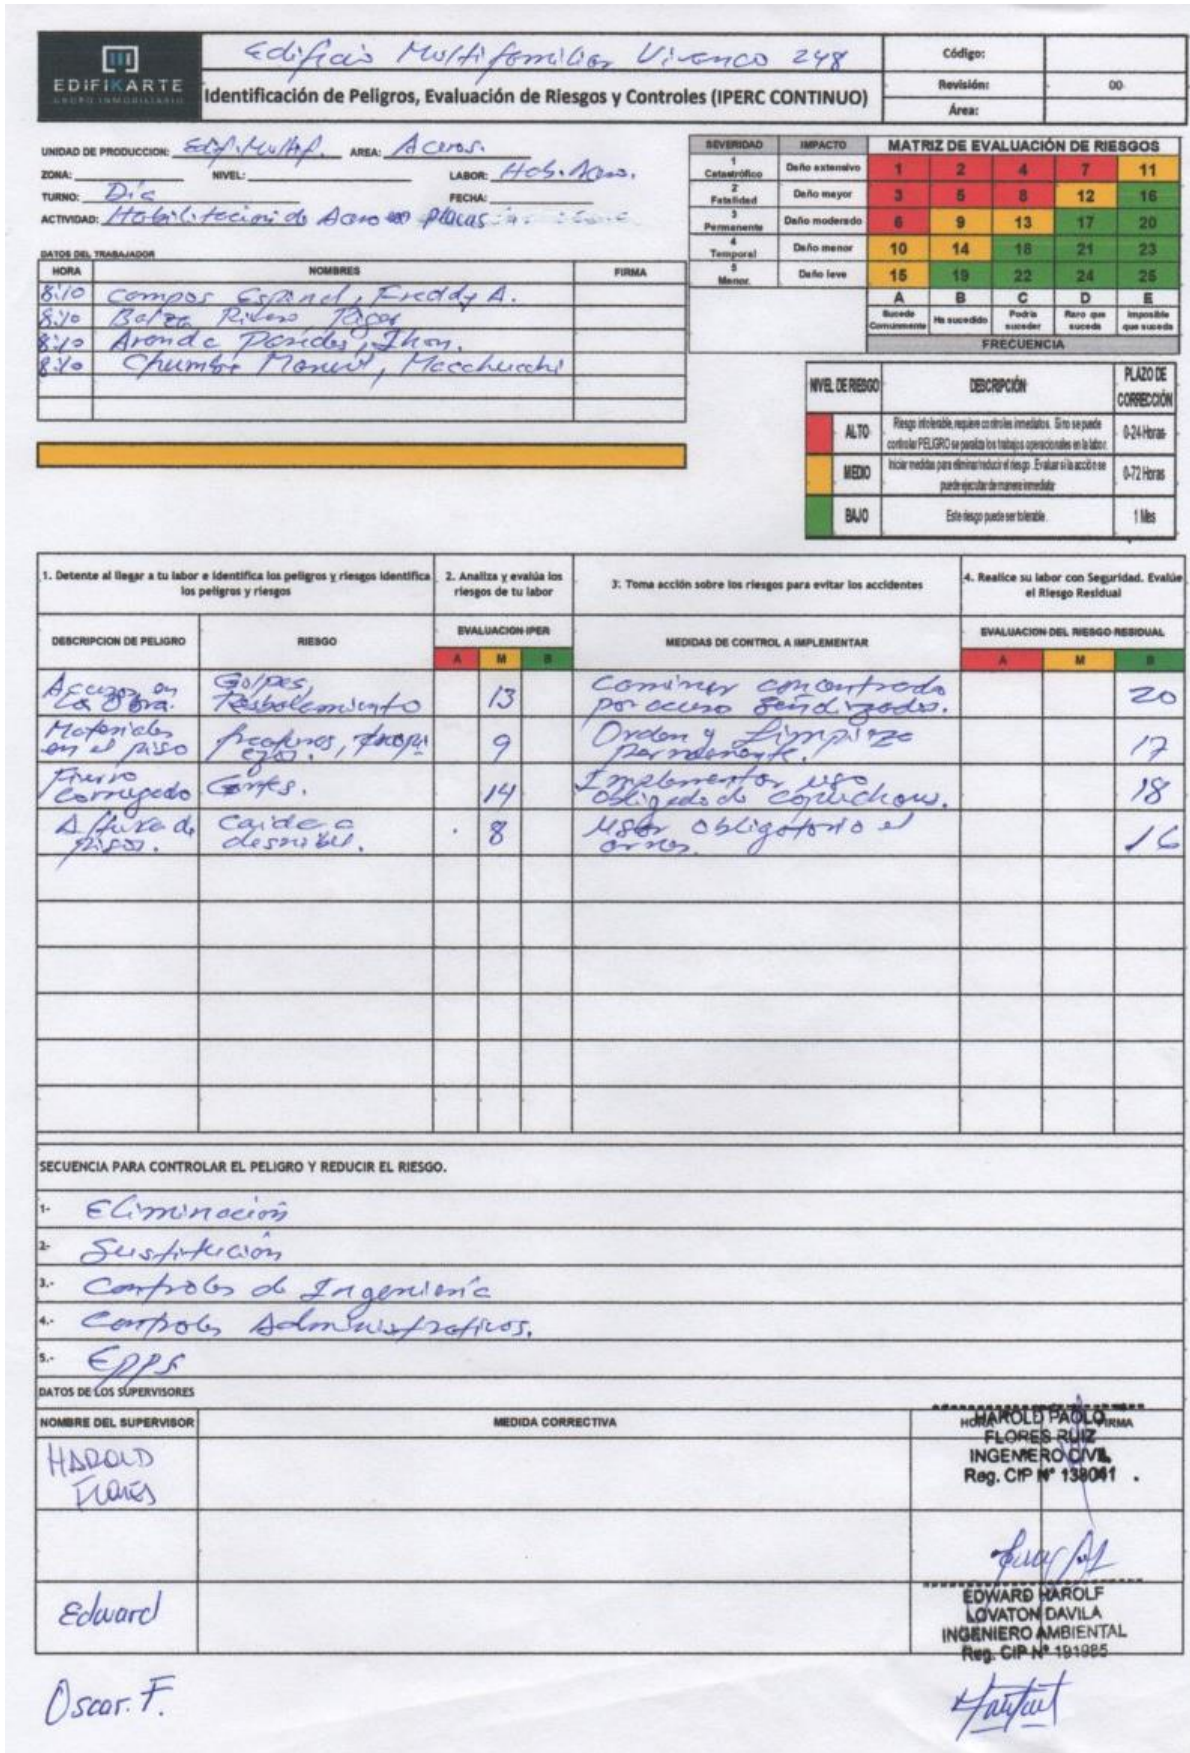 EDIFIKARTE
GRUPO INMOBILIARIO
Edificio Multifamiliar Vivanco 248
Identificación de Peligros, Evaluación de Riesgos y Controles (IPERC CONTINUO)
Código:
Revisión: 00
Área:
UNIDAD DE PRODUCCION: Edif. Multif. AREA: Aceros.
ZONA: NIVEL: LABOR: Hab. Acero.
TURNO: Día FECHA:
ACTIVIDAD: Habilitacion de Acero en placas
DATOS DEL TRABAJADOR
HORA NOMBRES FIRMA
8:10 Campos Espinel, Freddy A.
8:10
8:10 Aranda Paredes, Jhon.
8:10 Chumbe
SEVERIDAD IMPACTO MATRIZ DE EVALUACIÓN DE RIESGOS
1 Catastrófico Daño extensivo 1 2 4 7 11
2 Fatalidad Daño mayor 3 5 8 12 16
3 Permanente Daño moderado 6 9 13 17 20
4 Temporal Daño menor 10 14 18 21 23
5 Menor. Daño leve 15 19 22 24 25
A B C D E
Sucede Comunmente Ha sucedido Podría suceder Raro que suceda Imposible que suceda
FRECUENCIA
NIVEL DE RIESGO DESCRIPCIÓN PLAZO DE CORRECCIÓN
ALTO Riesgo intolerable, requiere controles inmediatos. Si no se puede controlar PELIGRO se paraliza los trabajos operacionales en la labor. 0-24 Horas
MEDIO Iniciar medidas para eliminar/reducir el riesgo. Evaluar si la acción se puede ejecutar de manera inmediata 0-72 Horas
BAJO Este riesgo puede ser tolerable. 1 Mes
1. Detente al llegar a tu labor e identifica los peligros y riesgos identifica los peligros y riesgos
2. Analiza y evalúa los riesgos de tu labor
3. Toma acción sobre los riesgos para evitar los accidentes
4. Realice su labor con Seguridad. Evalúe el Riesgo Residual
DESCRIPCION DE PELIGRO RIESGO EVALUACION IPER MEDIDAS DE CONTROL A IMPLEMENTAR EVALUACION DEL RIESGO RESIDUAL
A M B A M B
en la Obra. Golpes, Resbalamiento 13 Caminar concentrado por acceso señalizados. 20
Materiales en el piso fracturas, 9 Orden y Limpieza permanente. 17
Fierro corrugado Cortes. 14 Implementar uso 18
Altura de pisos. Caida a desnibel. 8 Usar obligatorio el arnes. 16
SECUENCIA PARA CONTROLAR EL PELIGRO Y REDUCIR EL RIESGO.
1- Eliminación
2- Sustitución
3.- Controles de Ingeniería
4.- Controles Administrativos.
5.- Epps
DATOS DE LOS SUPERVISORES
NOMBRE DEL SUPERVISOR MEDIDA CORRECTIVA HORA FIRMA
HAROLD FLORES
HAROLD PAOLO
FLORES RUIZ
INGENIERO CIVIL
Reg. CIP N° 138041
Edward
EDWARD HAROLF
LOVATON DAVILA
INGENIERO AMBIENTAL
Reg. CIP N° 191985
Oscar. F.